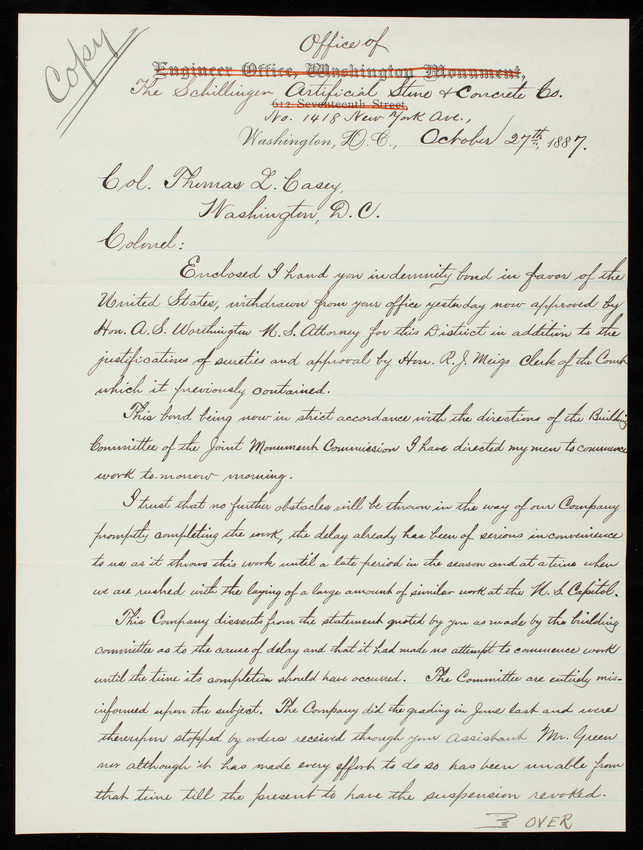 Copy
Office of
Engineer Office, Washington Monument,
The Schillinger Artificial Stone & Concrete Co.
612 Seventeenth Street,
No. 1418 New York Ave.,
Washington, D.C., October 27th, 1887.
Col. Thomas L. Casey,
Washington, D.C.
Colonel:
Enclosed I hand you indemnity bond in favor of the
United States, withdrawn from your office yesterday now approved by
Hon. A. S. Worthington U. S. Attorney for this District in addition to the
justifications of sureties and approval by Hon. R. J. Meigs Clerk of the Court
which it previously contained.
This bond being now in strict accordance with the directions of the Building
Committee of the Joint Monument Commission I have directed my men to commence
work to-morrow morning.
I trust that no further obstacles will be thrown in the way of our Company
promptly completing the work, the delay already has been of serious inconvenience
to us as it throws this work until a late period in the season and at a time when
we are rushed with the laying of a large amount of similar work at the U. S. Capitol.
This Company dissents from the statement quoted by you as made by the building
committee as to the cause of delay and that it had made no attempt to commence work
until the time its completion should have occured. The Committee are entirely mis-
informed upon the subject. The Company did the grading in June last and were
thereupon stopped by orders received through your Assistant Mr. Green
nor although it has made every effort to do so has been unable from
that time till the present to have the suspension revoked.
OVER